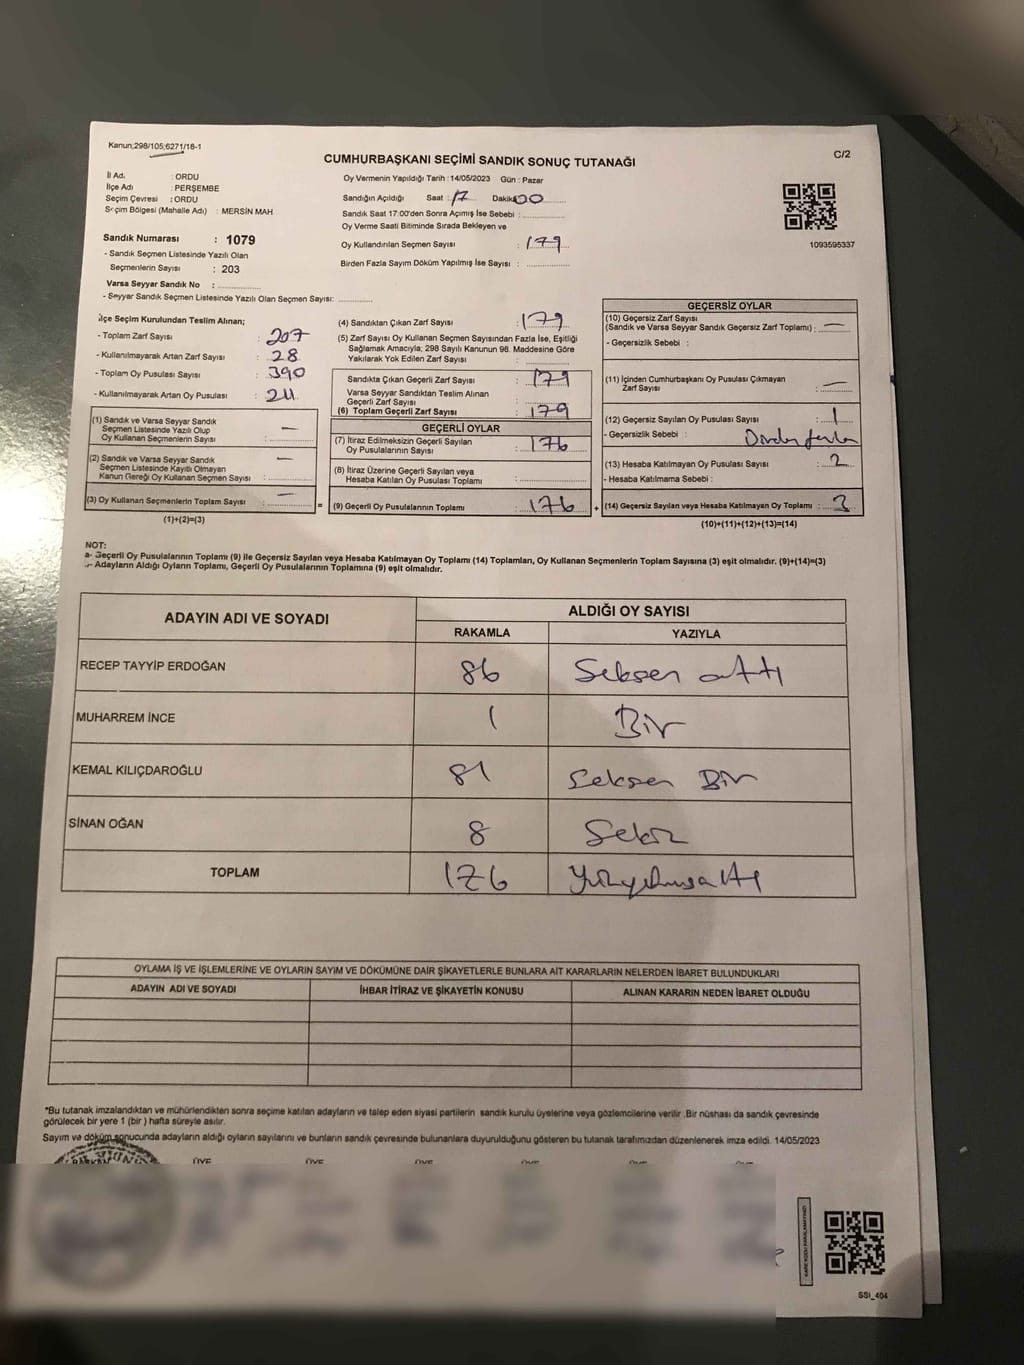 Kanun;298/105;6271/18-1
CUMHURBAŞKANI SEÇİMİ SANDIK SONUÇ TUTANAĞI
C/2
İl Adı : ORDU
İlçe Adı : PERŞEMBE
Seçim Çevresi : ORDU
Seçim Bölgesi (Mahalle Adı) : MERSİN MAH.
Oy Vermenin Yapıldığı Tarih :14/05/2023 Gün : Pazar
Sandığın Açıldığı Saat : 17 Dakika 00
Sandık Saat 17:00'den Sonra Açımış İse Sebebi :
Oy Verme Saati Bitiminde Sırada Bekleyen ve
Oy Kullandırılan Seçmen Sayısı : 179
Birden Fazla Sayım Döküm Yapılmış İse Sayısı :
1093595337
Sandık Numarası : 1079
- Sandık Seçmen Listesinde Yazılı Olan
Seçmenlerin Sayısı : 203
Varsa Seyyar Sandık No :
- Seyyar Sandık Seçmen Listesinde Yazılı Olan Seçmen Sayısı:
İlçe Seçim Kurulundan Teslim Alınan;
- Toplam Zarf Sayısı : 207
- Kullanılmayarak Artan Zarf Sayısı : 28
- Toplam Oy Pusulası Sayısı : 390
- Kullanılmayarak Artan Oy Pusulası : 211
(1) Sandık ve Varsa Seyyar Sandık
Seçmen Listesinde Yazılı Olup
Oy Kullanan Seçmenlerin Sayısı : —
(2) Sandık ve Varsa Seyyar Sandık
Seçmen Listesinde Kayıtlı Olmayan
Kanun Gereği Oy Kullanan Seçmen Sayısı : —
(3) Oy Kullanan Seçmenlerin Toplam Sayısı : — =
(1)+(2)=(3)
(4) Sandıktan Çıkan Zarf Sayısı : 179
(5) Zarf Sayısı Oy Kullanan Seçmen Sayısından Fazla İse, Eşitliği
Sağlamak Amacıyla, 298 Sayılı Kanunun 98. Maddesine Göre
Yakılarak Yok Edilen Zarf Sayısı :
Sandıkta Çıkan Geçerli Zarf Sayısı : 179
Varsa Seyyar Sandıktan Teslim Alınan
Geçerli Zarf Sayısı :
(6) Toplam Geçerli Zarf Sayısı : 179
GEÇERLİ OYLAR
(7) İtiraz Edilmeksizin Geçerli Sayılan
Oy Pusulalarının Sayısı : 176
(8) İtiraz Üzerine Geçerli Sayılan veya
Hesaba Katılan Oy Pusulası Toplamı :
(9) Geçerli Oy Pusulalarının Toplamı : 176 +
GEÇERSİZ OYLAR
(10) Geçersiz Zarf Sayısı
(Sandık ve Varsa Seyyar Sandık Geçersiz Zarf Toplamı) : —
- Geçersizlik Sebebi :
(11) İçinden Cumhurbaşkanı Oy Pusulası Çıkmayan
Zarf Sayısı : —
(12) Geçersiz Sayılan Oy Pusulası Sayısı : 1
- Geçersizlik Sebebi :
(13) Hesaba Katılmayan Oy Pusulası Sayısı : 2
- Hesaba Katılmama Sebebi :
(14) Geçersiz Sayılan veya Hesaba Katılmayan Oy Toplamı : 3
(10)+(11)+(12)+(13)=(14)
NOT:
a- Geçerli Oy Pusulalarının Toplamı (9) ile Geçersiz Sayılan veya Hesaba Katılmayan Oy Toplamı (14) Toplamları, Oy Kullanan Seçmenlerin Toplam Sayısına (3) eşit olmalıdır. (9)+(14)=(3)
- Adayların Aldığı Oyların Toplamı, Geçerli Oy Pusulalarının Toplamına (9) eşit olmalıdır.
ADAYIN ADI VE SOYADI
ALDIĞI OY SAYISI
RAKAMLA YAZIYLA
RECEP TAYYİP ERDOĞAN 86 Seksen altı
MUHARREM İNCE 1 Bir
KEMAL KILIÇDAROĞLU 81 Seksen Bir
SİNAN OĞAN 8 Sekiz
TOPLAM 176 Yüzyetmişaltı
OYLAMA İŞ VE İŞLEMLERİNE VE OYLARIN SAYIM VE DÖKÜMÜNE DAİR ŞİKAYETLERLE BUNLARA AİT KARARLARIN NELERDEN İBARET BULUNDUKLARI
ADAYIN ADI VE SOYADI İHBAR İTİRAZ VE ŞİKAYETİN KONUSU ALINAN KARARIN NEDEN İBARET OLDUĞU
*Bu tutanak imzalandıktan ve mühürlendikten sonra seçime katılan adayların ve talep eden siyasi partilerin sandık kurulu üyelerine veya gözlemcilerine verilir .Bir nüshası da sandık çevresinde
görülecek bir yere 1 (bir ) hafta süreyle asılır.
Sayım ve döküm sonucunda adayların aldığı oyların sayılarını ve bunların sandık çevresinde bulunanlara duyurulduğunu gösteren bu tutanak tarafımızdan düzenlenerek imza edildi. 14/05/2023
BAŞKAN ÜYE ÜYE ÜYE ÜYE ÜYE ÜYE
SSİ_404